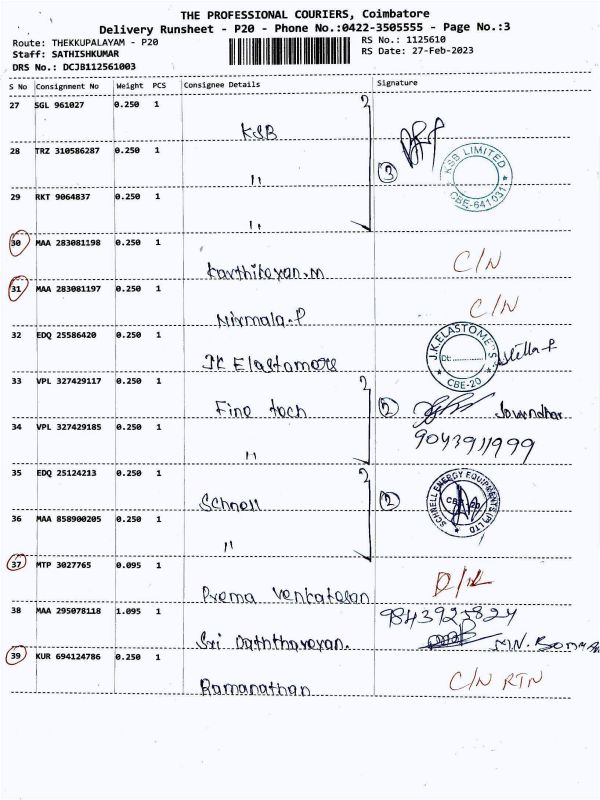 THE PROFESSIONAL COURIERS, Coimbatore
Delivery Runsheet - P20 - Phone No.:0422-3505555 - Page No.:3
Route: THEKKUPALAYAM - P20
RS No.: 1125610
Staff: SATHISHKUMAR
RS Date: 27-Feb-2023
DRS No.: DCJB112561003
S No Consignment No Weight PCS Consignee Details Signature
27 SGL 961027 0.250 1
KSB
28 TRZ 310586287 0.250 1
"
3
KSB LIMITED
CBE-641031
29 RKT 9064837 0.250 1
"
30 MAA 283081198 0.250 1
Karthikeyan.M C/N
31 MAA 283081197 0.250 1
Nirmala.P C/N
32 EDQ 25586420 0.250 1
JK Elastomers
J.K.ELASTOMERS
Dt:
CBE-20
Stella P
33 VPL 327429117 0.250 1
Fine tech 2
34 VPL 327429185 0.250 1
" 9043911999
35 EDQ 25124213 0.250 1
Schnell 2
SCHNELL ENERGY EQUIPMENTS (P) LTD
36 MAA 858900205 0.250 1
"
37 MTP 3027765 0.095 1
Prema Venkatesan D/L
38 MAA 295078118 1.095 1
9843925824
Sri Daththareyan.
39 KUR 694124786 0.250 1
Ramanathan C/N RTN